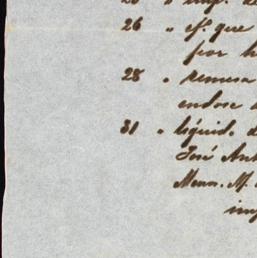 26 " ef. que
por h
28 " remesa
endose a
31 " líquid. d
José Ant
Mann. M.
im